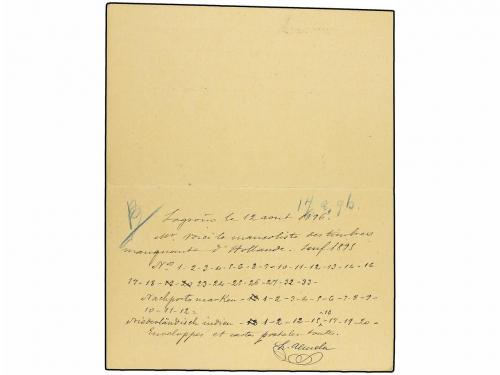 14.8.96.
Logroño le 12 aout 1896.
Mr. Voici le mancoliste des timbres
manquants d'Hollande. Senf 1895
No 1-2-3-4-5-6-8-9-10-11-12-13-14-16
17-18- 23-24-25-26-27-32-33-
Nachporto marken - 1-2-3-4-5-6-7-8-9-
10-11-12=
Niederländisch indien - 1-2-12-15-16-17-19-20-
Enveloppes et cartes postales toutes.